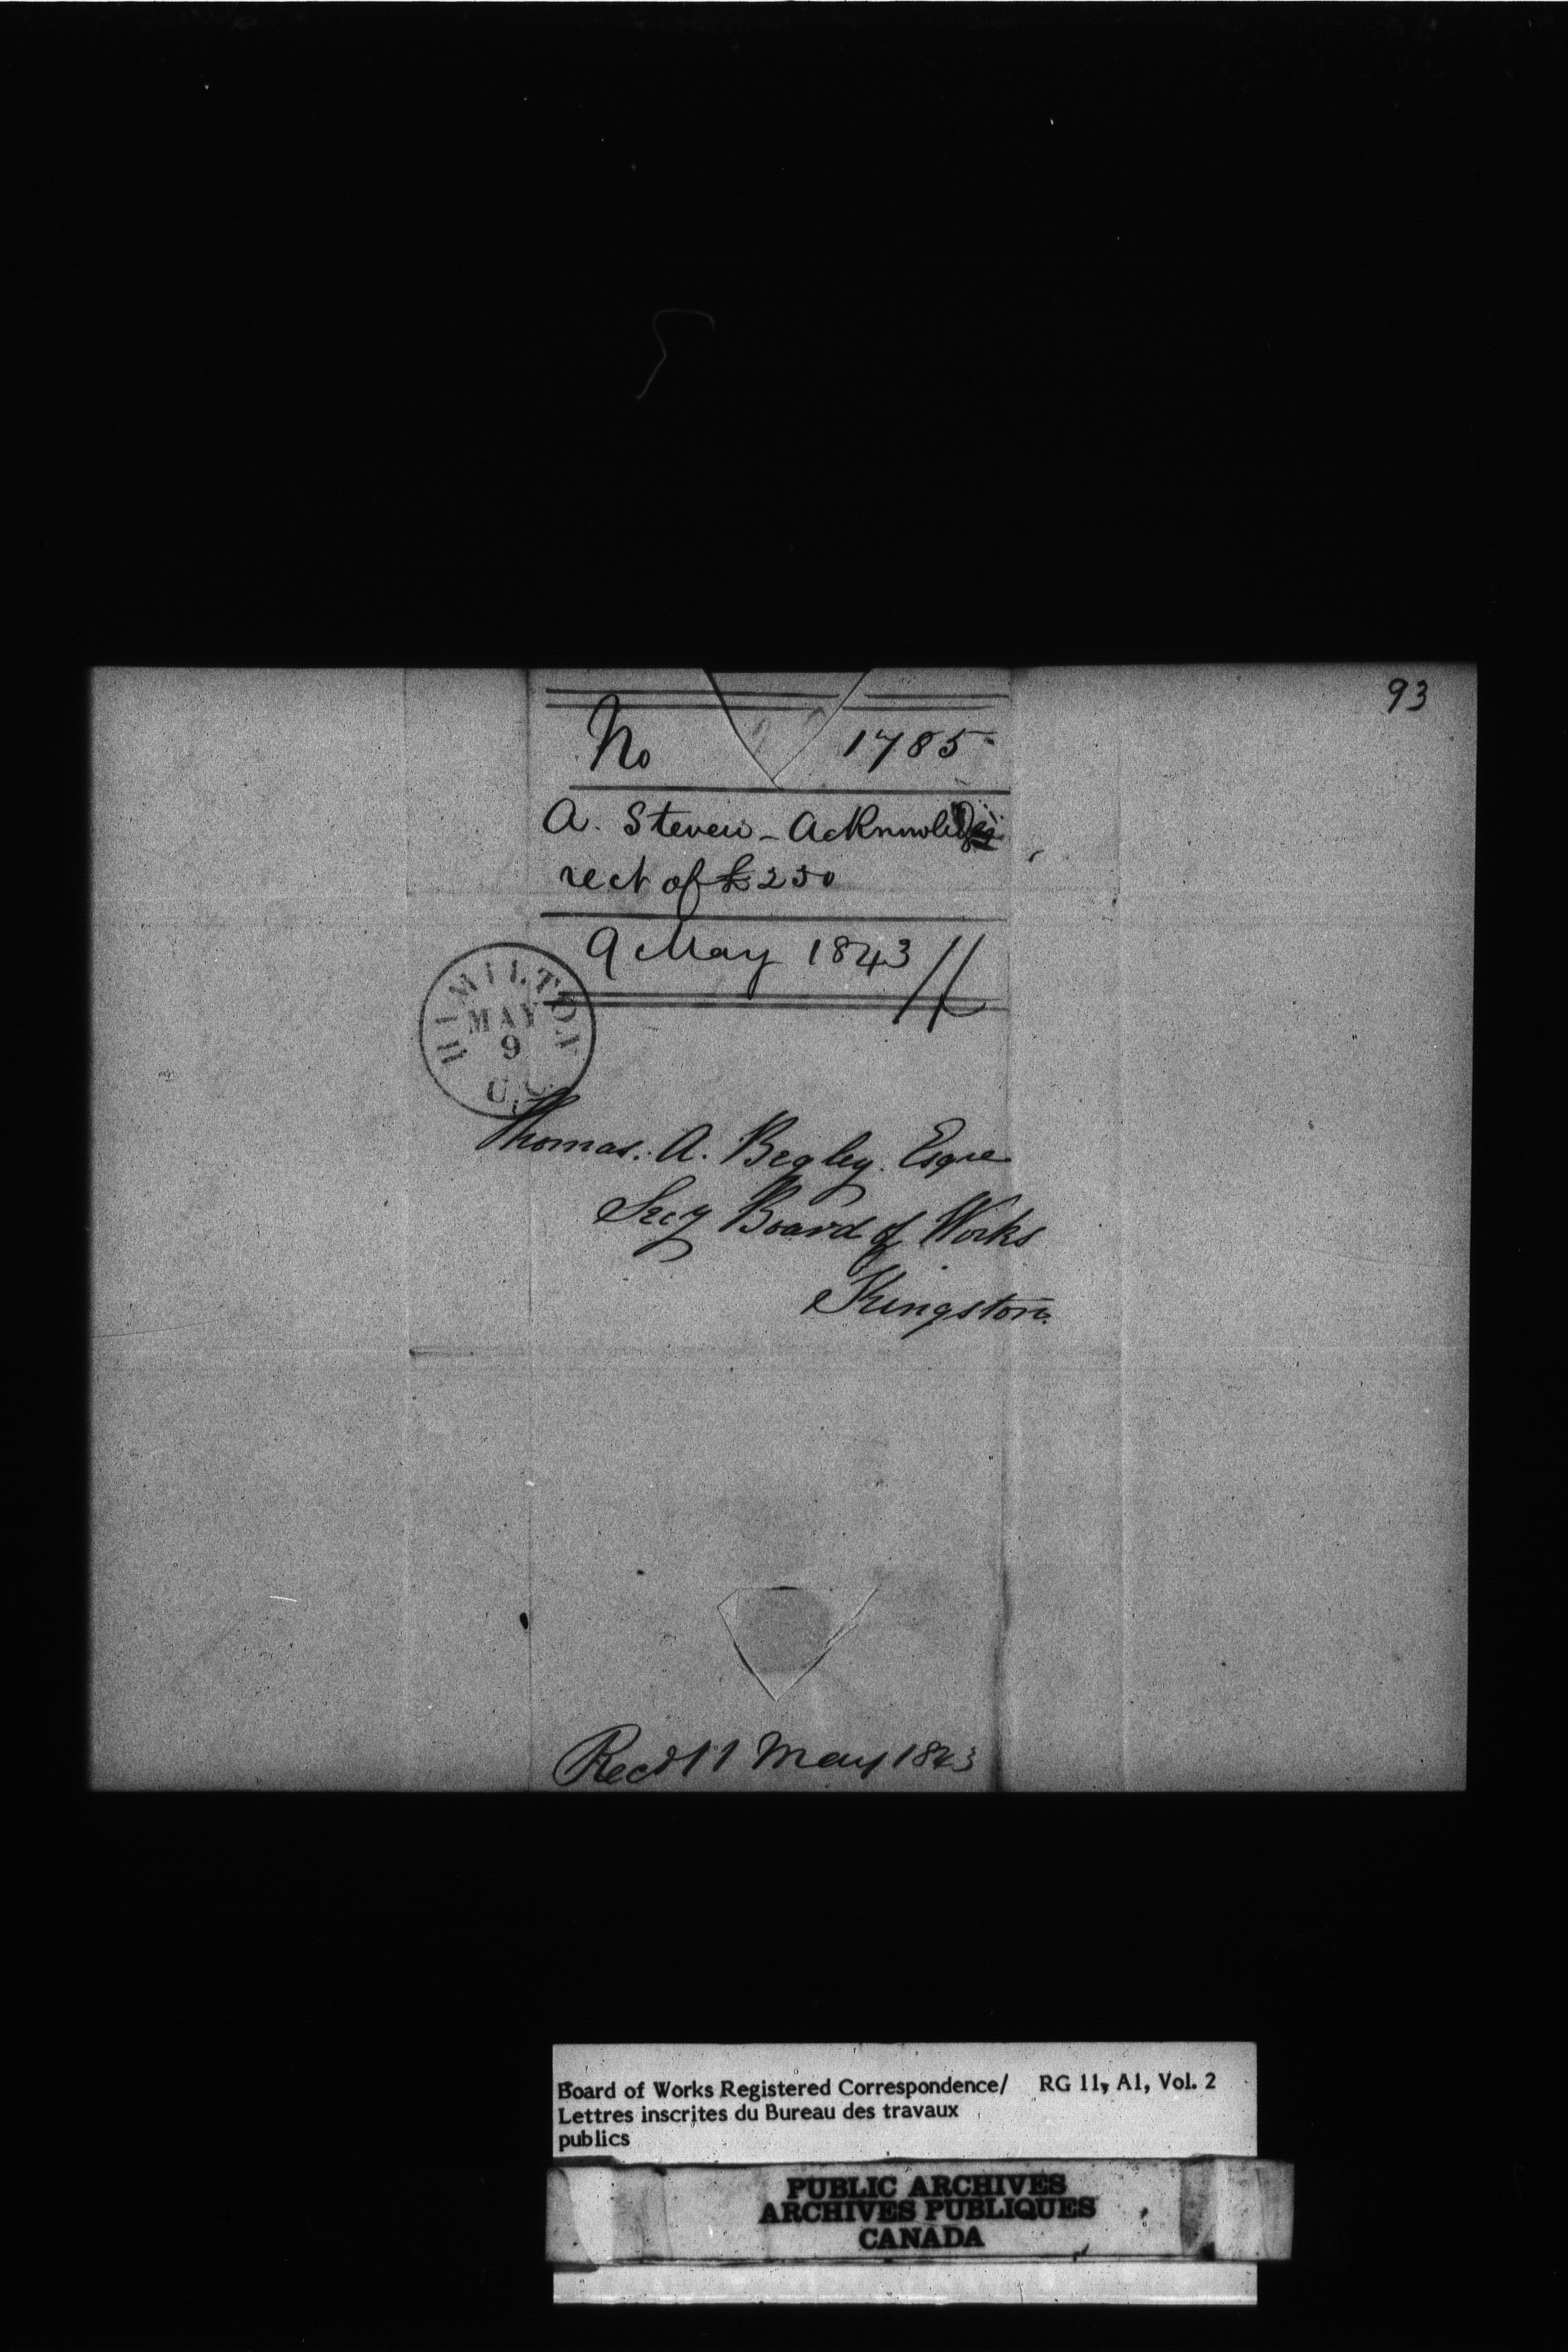 93
No 1785
A. Steven - Acknowledges
rect of £250
9 May 1843
HAMILTON
MAY
9
U.C.
Thomas. A. Begley. Esqre
Secy Board of Works
Kingston.
Recd 11 May 1843
Board of Works Registered Correspondence/ RG 11, A1, Vol. 2
Lettres inscrites du Bureau des travaux
publics
PUBLIC ARCHIVES
ARCHIVES PUBLIQUES
CANADA